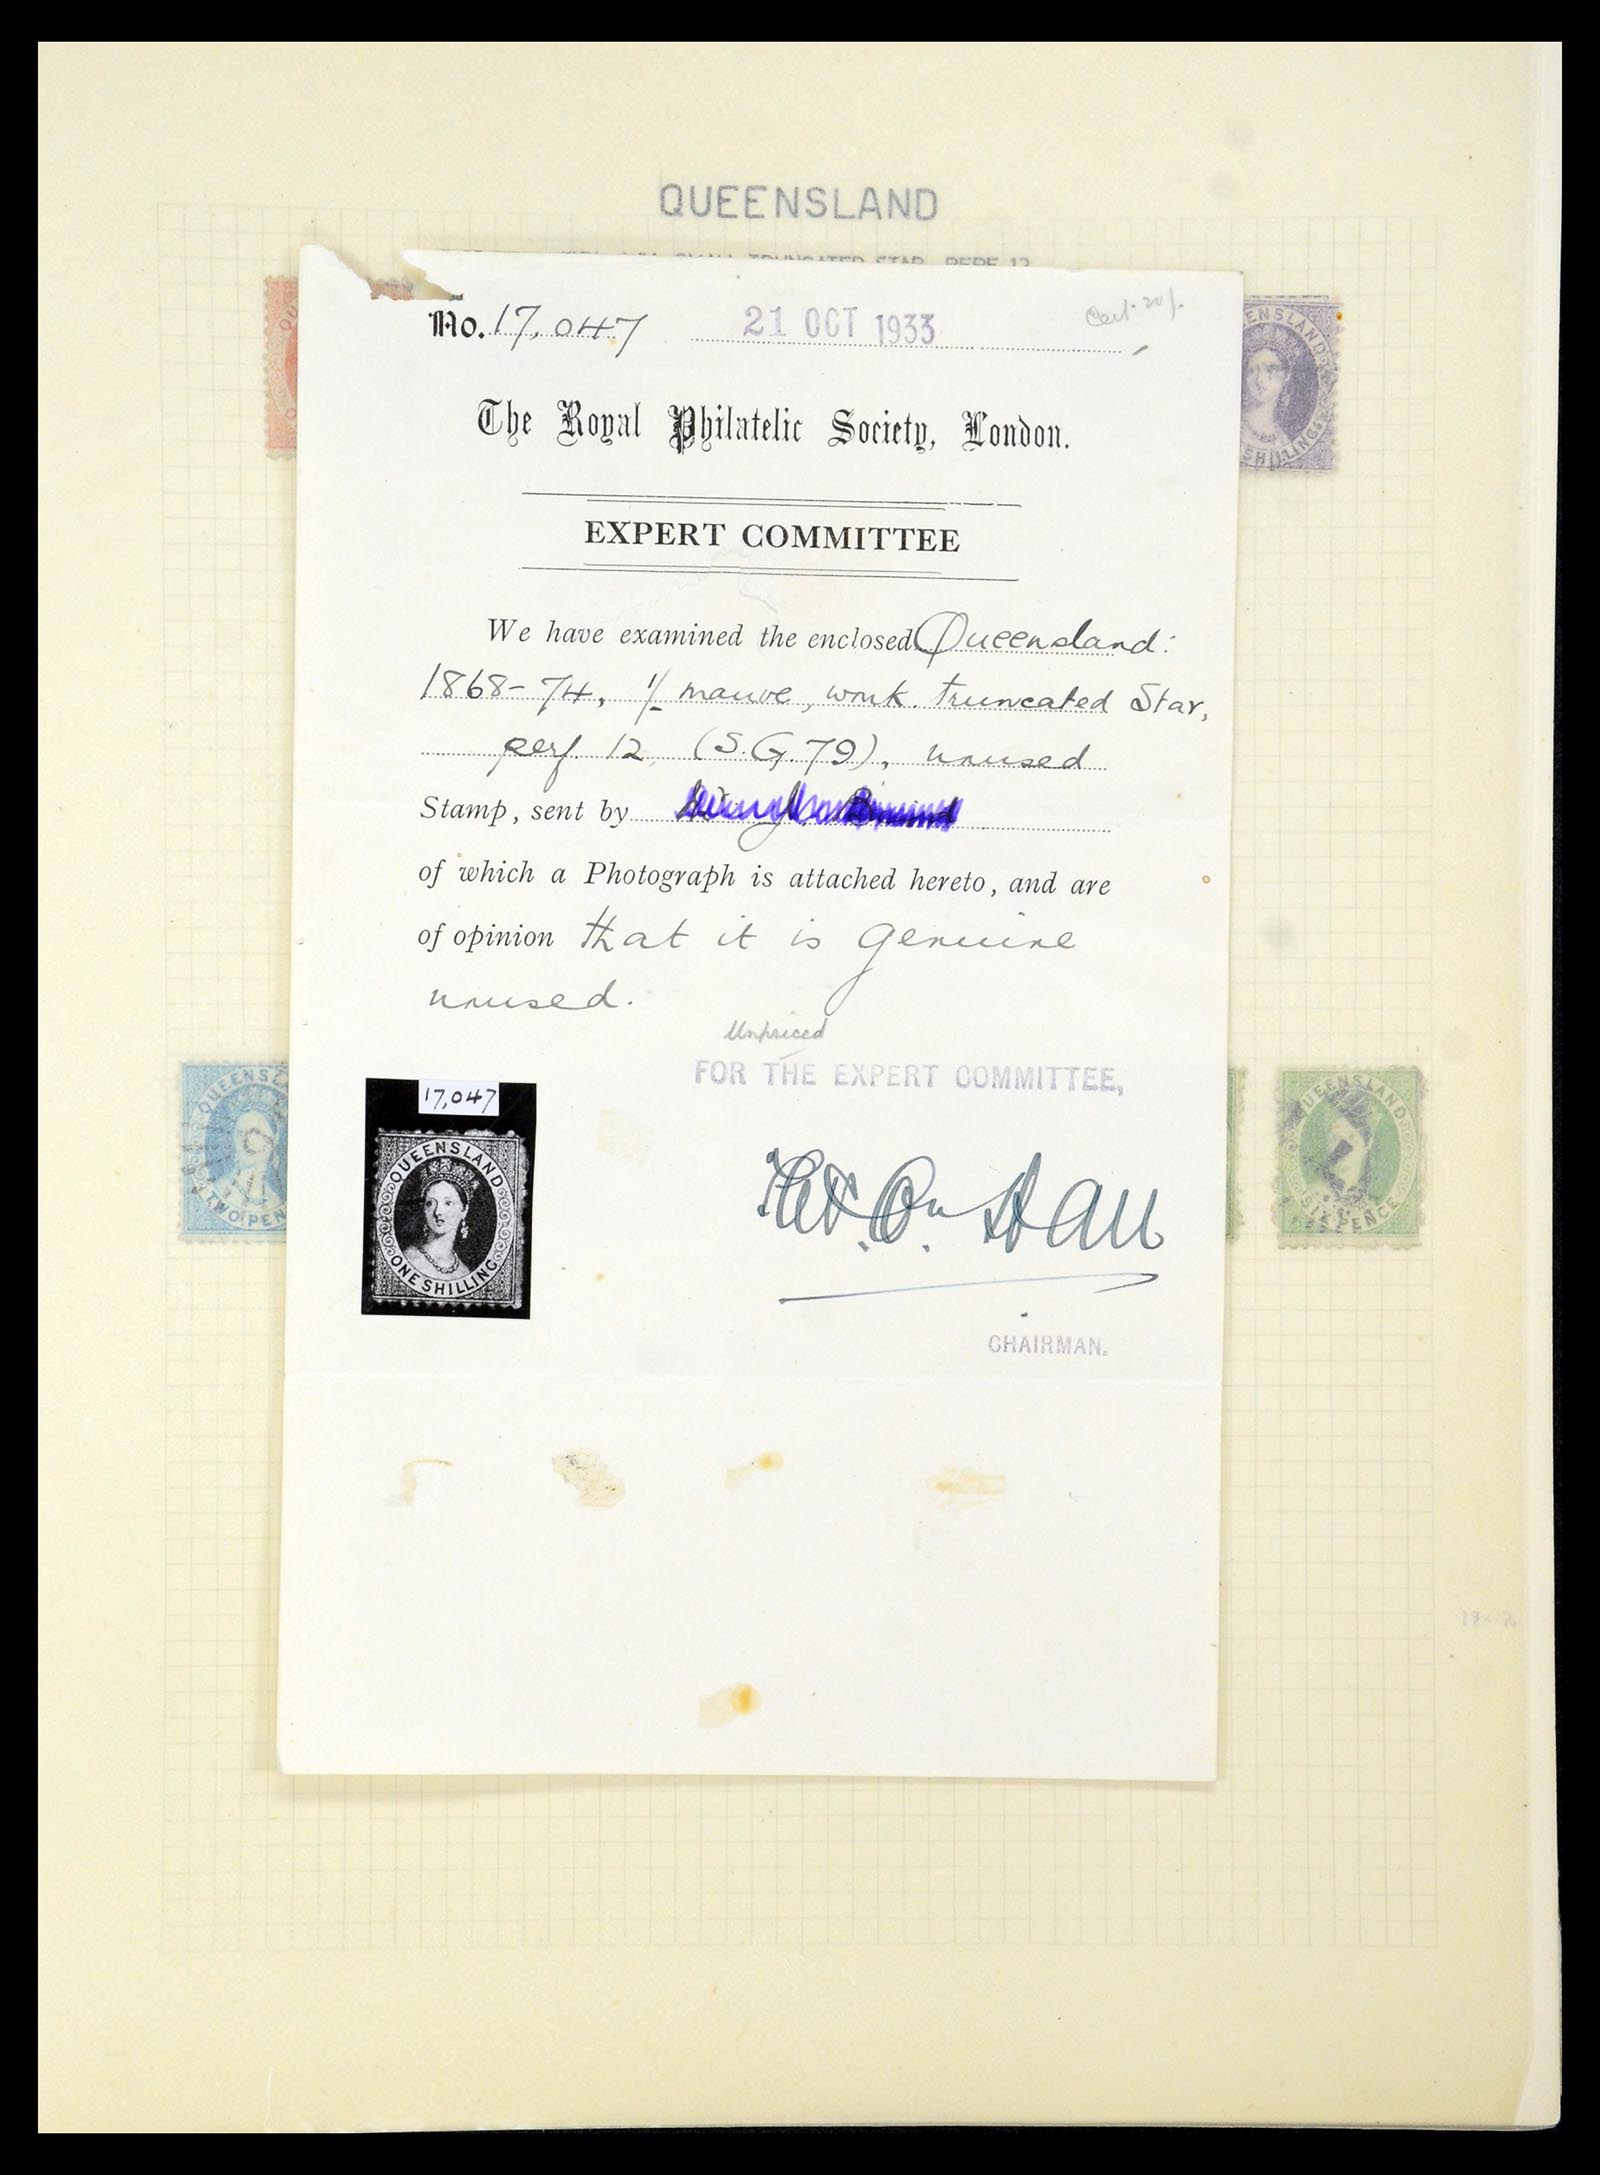 QUEENSLAND
SMALL TRUNCATED STAR PERF 12
No. 17,047 21 OCT 1933 Cert. 20/-
The Royal Philatelic Society, London.
EXPERT COMMITTEE
We have examined the enclosed Queensland:
1868-74, 1/- mauve, wmk. truncated Star,
perf. 12, (S.G. 79), unused
Stamp, sent by
of which a Photograph is attached hereto, and are
of opinion that it is genuine
unused.
Unpriced
FOR THE EXPERT COMMITTEE,
17,047
QUEENSLAND
ONE SHILLING
CHAIRMAN.
ENSLAND
SHILLING
QUEENSL
TWO PEN
UEENSLAND
SIX PENCE